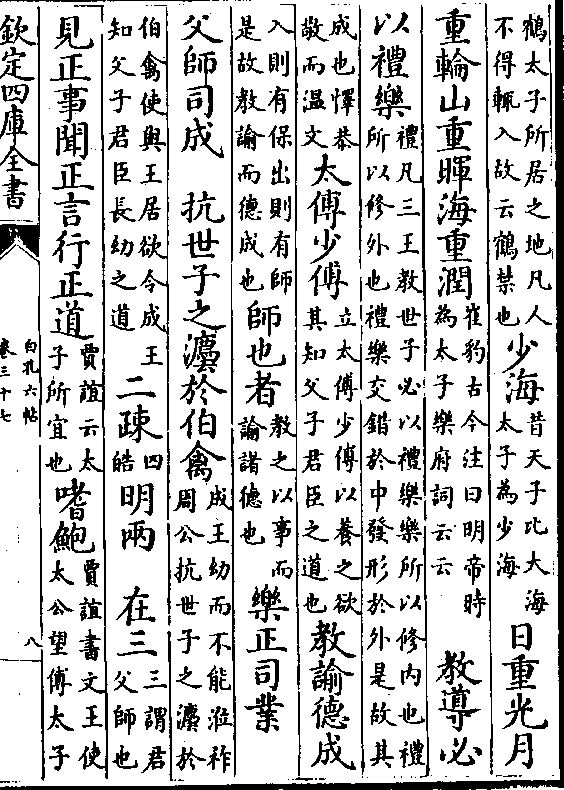 鶴太子所居之地凡人不得輒入故云鶴禁也少海昔天子比大海太子為少海日重光月
重輪山重暉海重潤崔豹古今注曰明帝時為太子樂府詞云云教導必
以禮樂禮凡三王教世子必以禮樂樂所以修内也禮所以修外也禮樂交錯於中發形於外是故其
成也懌恭敬而温文太傅少傅立太傅少傅以養之欲其知父子君臣之道也教諭德成
入則有保出則有師是故教諭而德成也師也者教之以事而諭諸德也樂正司業
父師司成 抗世子之灋於伯禽成王幼而不能涖祚周公抗世子之灋於
伯禽使與王居欲令成王知父子君臣長幼之道二疎四皓明兩 在三三謂君父師也
見正事聞正言行正道賈誼云太子所宜也嗜鮑賈誼書文王使太公望傅太子
欽定四庫全書
白孔六帖
卷三十七
八